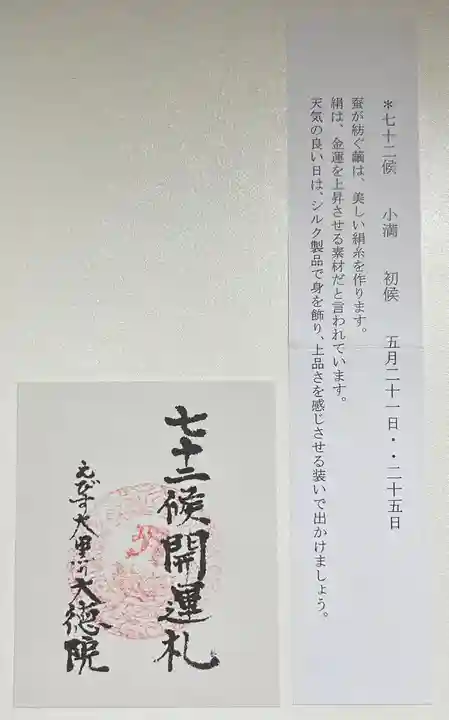 *七十二候　小満　初候　五月二十一日・・二十五日
蚕が紡ぐ繭は、美しい絹糸を作ります。
絹は、金運を上昇させる素材だと言われています。
天気の良い日は、シルク製品で身を飾り、上品さを感じさせる装いで出かけましょう。
七十二候開運札
えびす大黒 大徳院